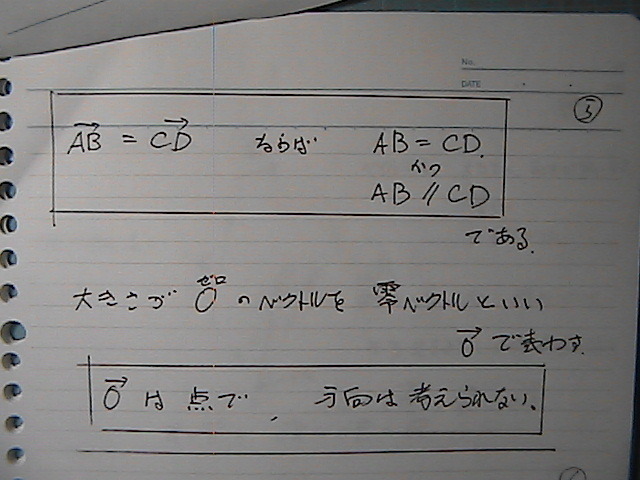 No.
DATE
③
$\overrightarrow{AB} = \overrightarrow{CD}$ ならば AB = CD.
かつ
AB // CD
である.
ゼロ
大きさが 0 のベクトルを 零ベクトルといい
$\vec{0}$ で表わす.
$\vec{0}$ は 点で, 方向は 考えられない.